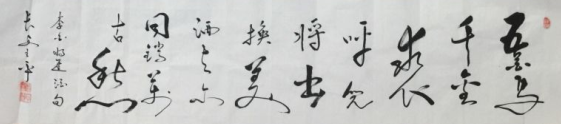 五花马
千金
裘
呼儿
将出
换美
酒与尔
同销万
古愁
李白将进酒句